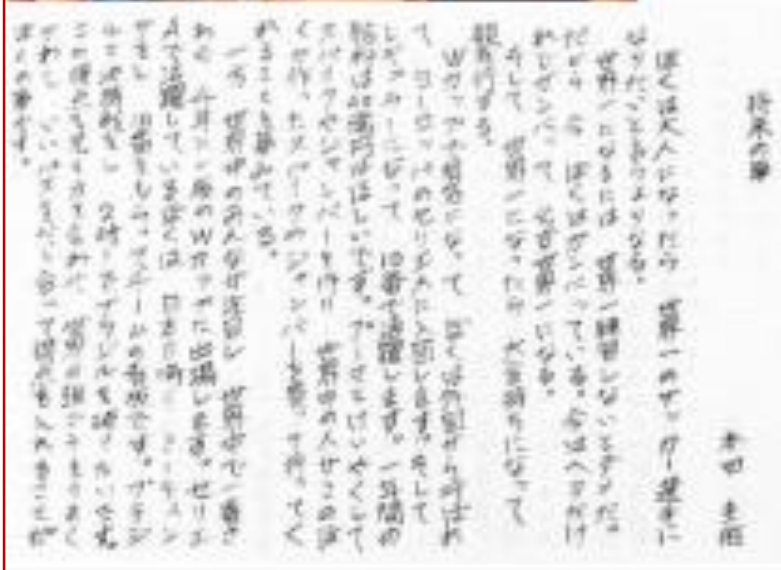 将来の夢
本田 圭佑
ぼくは大人になったら 世界一のサッカー選手に
なりたいと言うよりなる。
世界一になるには 世界一練習しないとダメだ。
だから 今 ぼくはガンバっている。今はヘタだけ
れどガンバって 必ず世界一になる。
そして 世界一になったら 大金持ちになって
親孝行する。
Wカップで有名になって ぼくは外国から呼ばれ
て ヨーロッパのセリエAに入団します。そして
レギュラーになって 10番で活躍します。一年間の
給料は40億円はほしいです。プーマとけいやくして
スパイクやジャンパーを作り 世界中の人がこのぼ
くが作ったスパイクやジャンパーを買って行ってく
れることを夢みている。
一方 世界中のみんなが注目し 世界中で一番さ
わぐ 4年に一度のWカップに出場します。セリエ
Aで活躍しているぼくは 日本に帰り ミーティン
グをし 10番をもらってチームの看板です。ブラジ
ルと決勝戦をし 2対1でブラジルを破りたいです。
この得点も兄と力を合わせ 世界の強ゴウをうまく
かわし いいパスをだし合って得点を入れることが
ぼくの夢です。